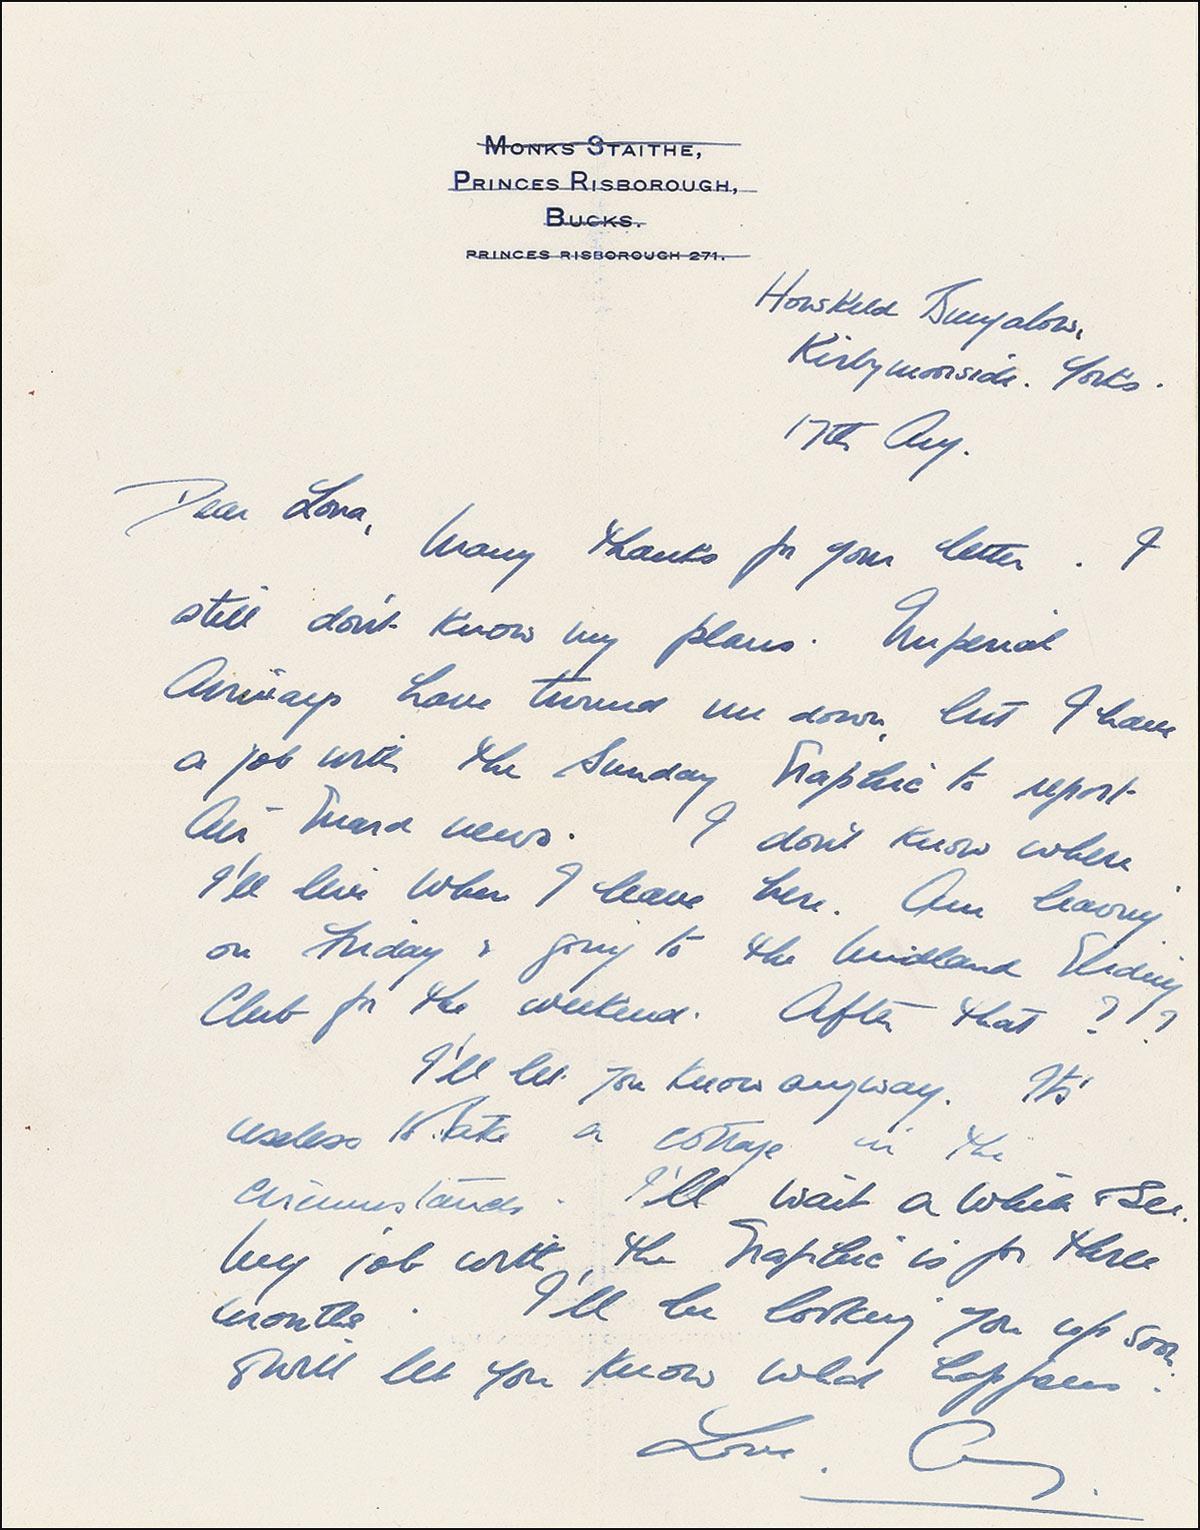 MONKS STAITHE,
PRINCES RISBOROUGH,
BUCKS.
PRINCES RISBOROUGH 271.
Howkeld Bungalow,
Kirbymoorside. Yorks.
17th Aug.
Dear Lona,
Many thanks for your letter. I
still don't know my plans. Imperial
Airways have turned me down, but I have
a job with the Sunday Graphic to report
Air Guard news. I don't know where
I'll live when I leave here. Am leaving
on Friday & going to the Midland Gliding
Club for the weekend. After that ???
I'll let you know anyway. It's
useless to take a cottage in the
circumstances. I'll wait a while & see.
My job with the Graphic is for three
months. I'll be looking you up soon
& will let you know what happens.
Love. Amy.